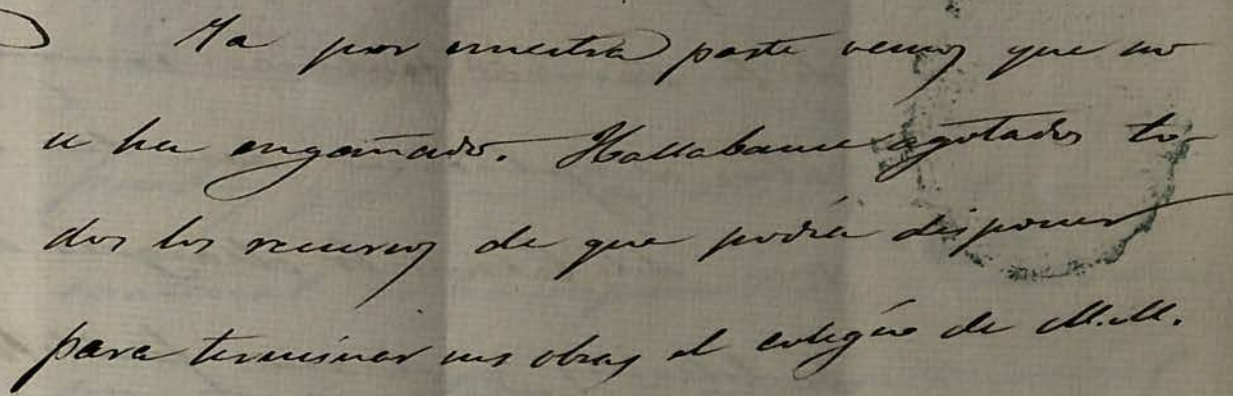 Ya por nuestra parte vemos que no
se ha engañado. Hallabanse agotados to-
dos los recursos de que podía disponer
para terminar sus obras el colegio de M.M.